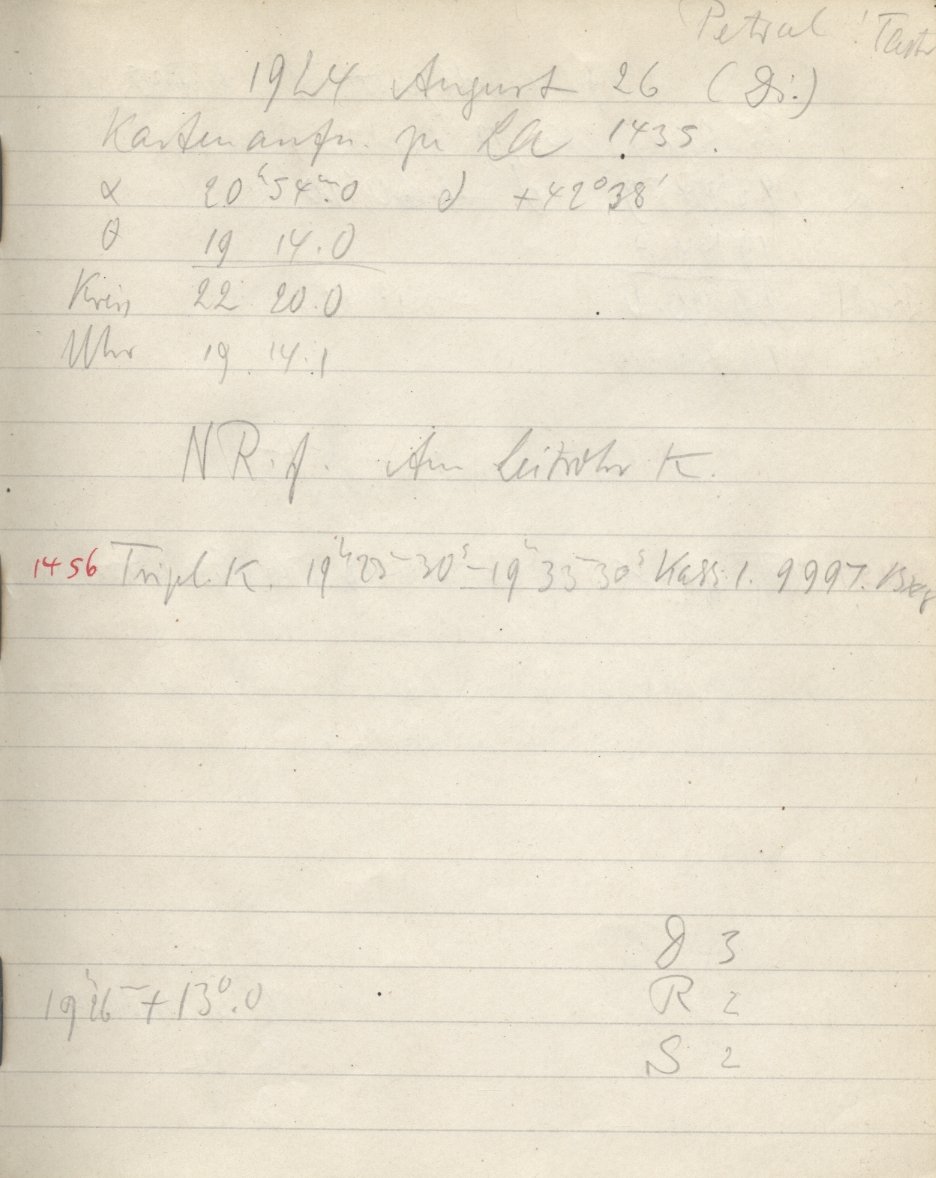 1924 August 26 (Di.)
Kartenaufn. zu LA 1435.
α 20ʰ54ᵐ.0 δ +42°38'
θ 19 14.0
Kreis 22 20.0
Uhr 19 14.1
NR. f. Am Leitrohr K.
1456 Tripl. K. 19ʰ23ᵐ30ˢ–19ʰ33ᵐ30ˢ Kass. 1. 9997.
D 3
19ʰ26ᵐ +13°.0 R 2
S 2